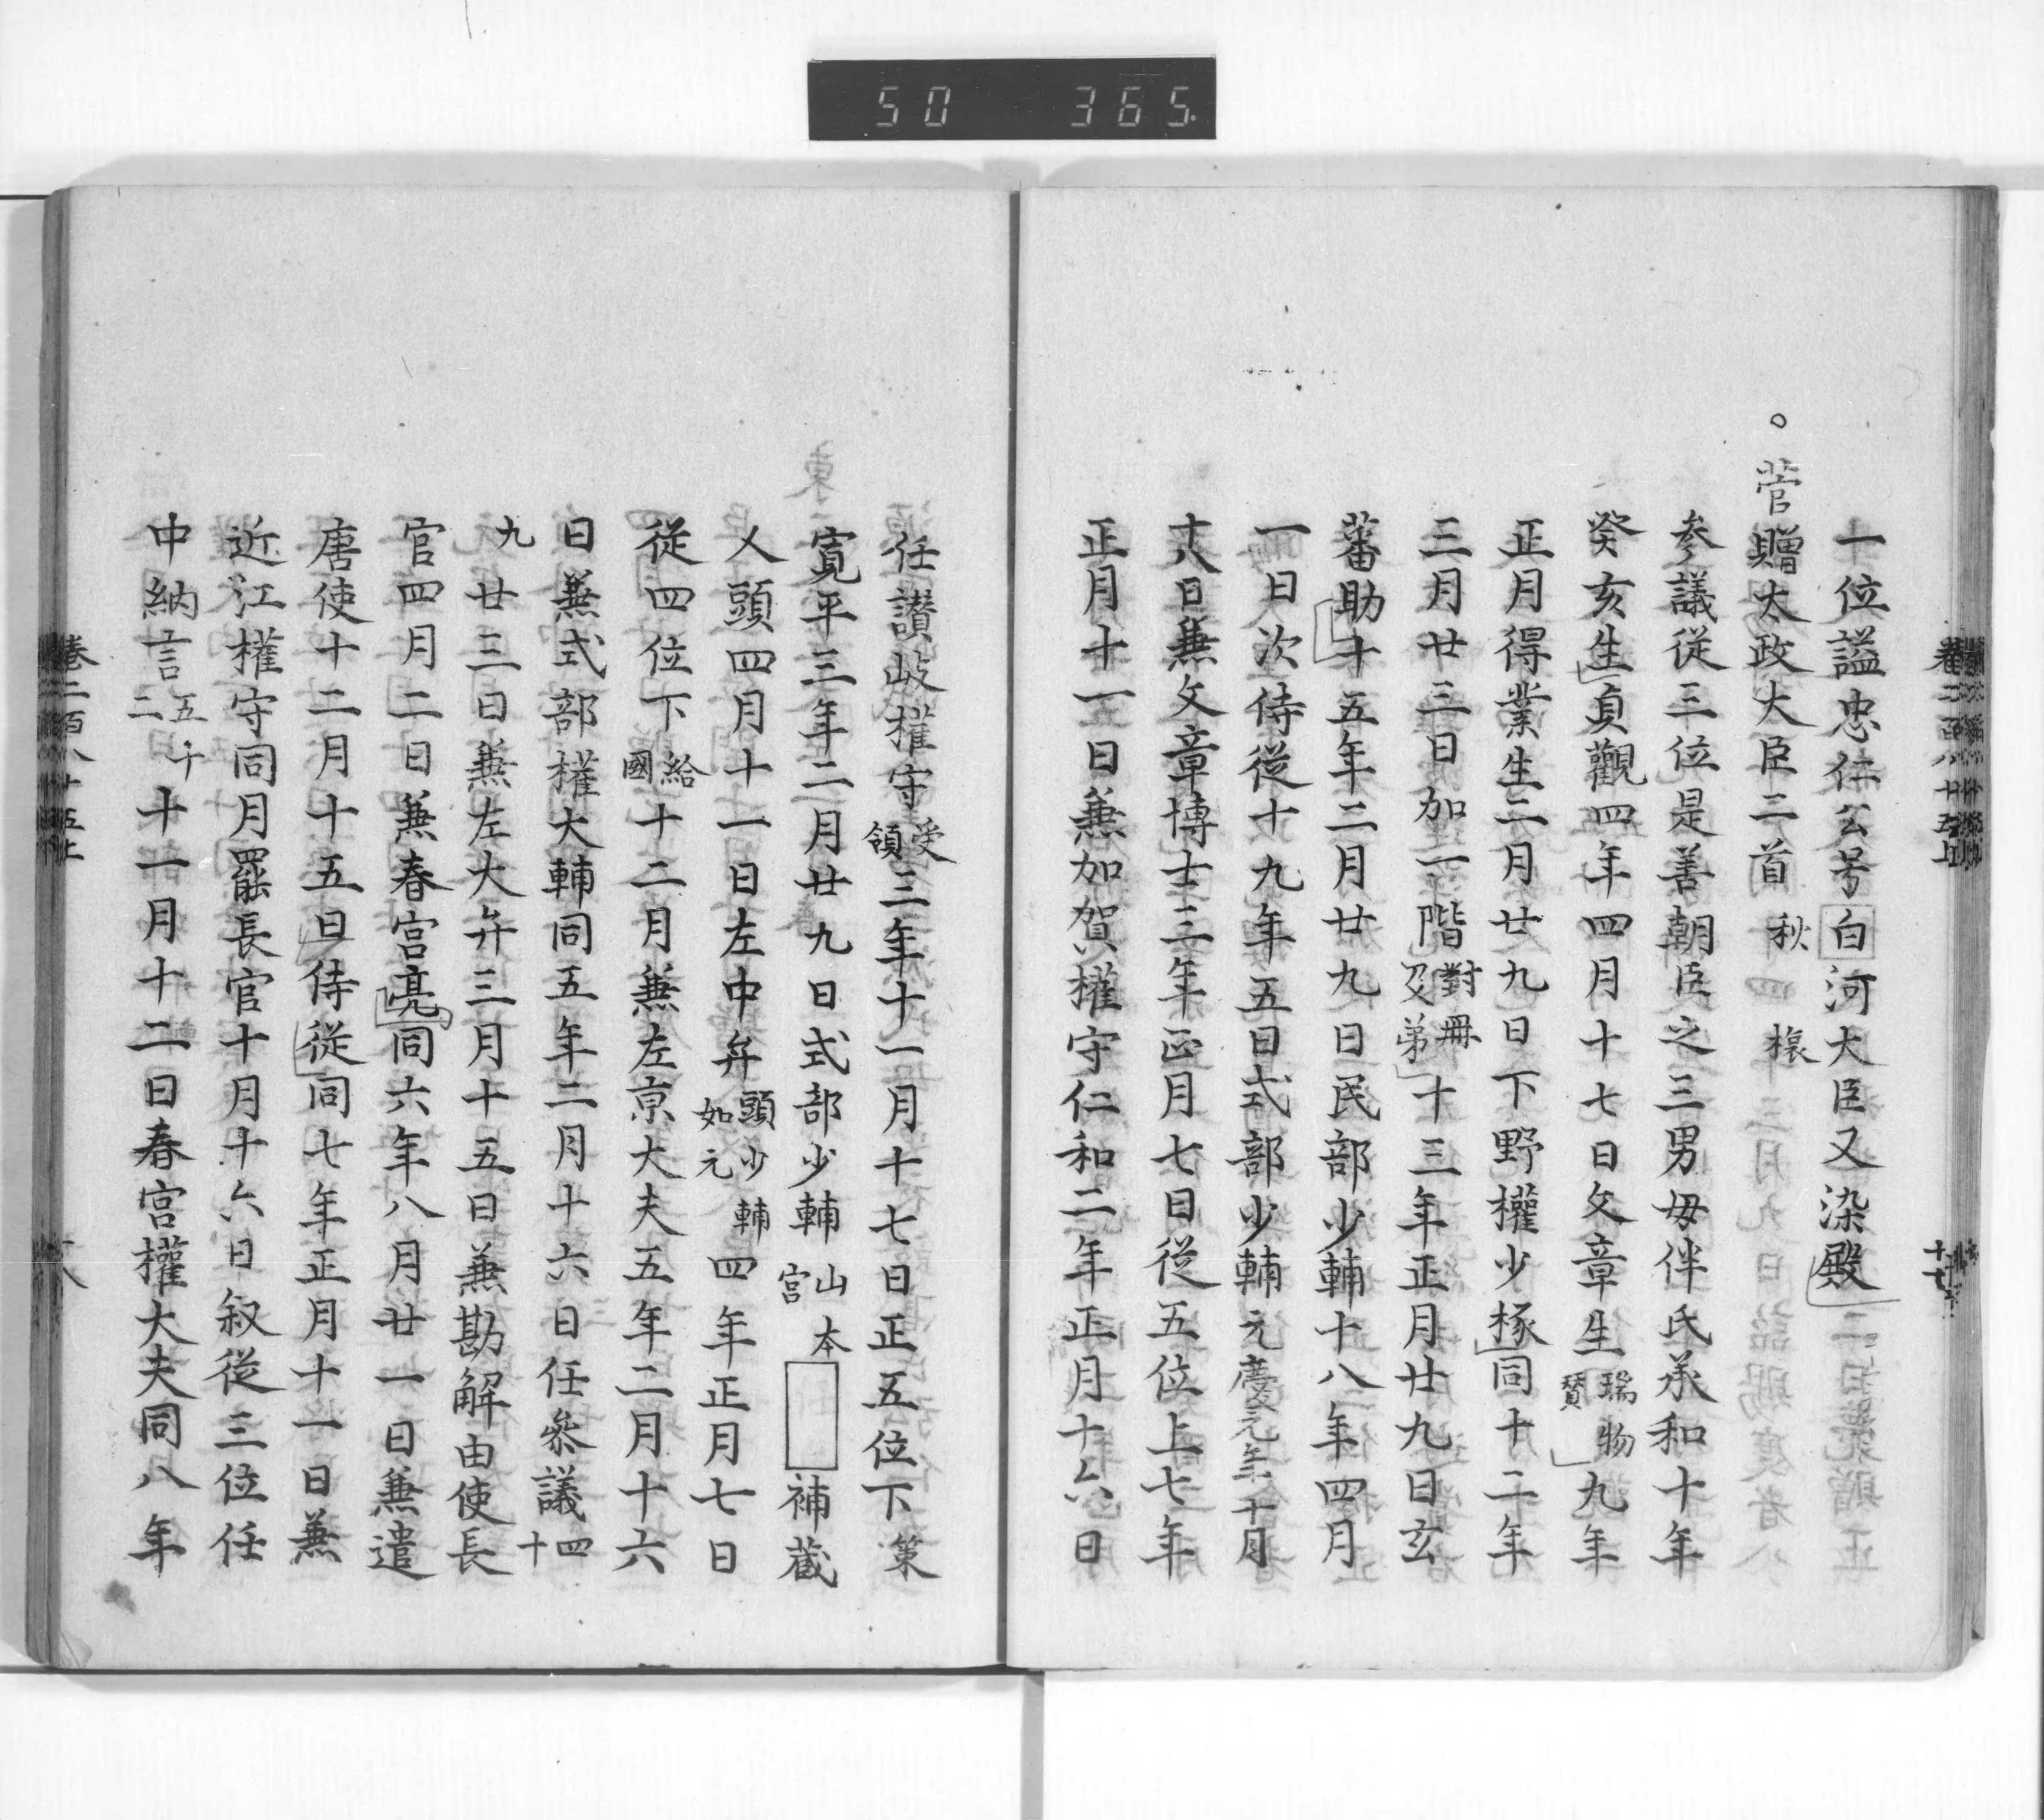 50 365
卷二百八十五上
十七
一位謚忠仁公号白河大臣又染殿
。菅贈太政大臣二首 秋 榱
参議從三位是善朝臣之三男母伴氏承和十年
癸亥生貞觀四年四月十七日文章生瑞物賛九年
正月得業生二月廿九日下野權少掾同十二年
三月廿三日加一階對冊及弟十三年正月廿九日玄
蕃助十五年二月廿九日民部少輔十八年四月
一日次侍從十九年五日式部少輔元慶元年十月
十八日兼文章博士三年正月七日從五位上七年
正月十一日兼加賀權守仁和二年正月十六日
任讃岐權守受領三年十一月十七日正五位下策
寛平三年二月廿九日式部少輔山本宮補蔵
人頭四月十一日左中弁頭少輔如元四年正月七日
従四位下給國十二月兼左京大夫五年二月十六
日兼式部權大輔同五年二月十六日任参議四十
九廿三日兼左大弁三月十五日兼勘解由使長
官四月二日兼春宮亮同六年八月廿一日兼遣
唐使十二月十五日侍從同七年正月十一日兼
近江權守同月罷長官十月十六日叙從三位任
中納言五十二十一月十二日春宮權大夫同八年
卷二百八十五上
十八